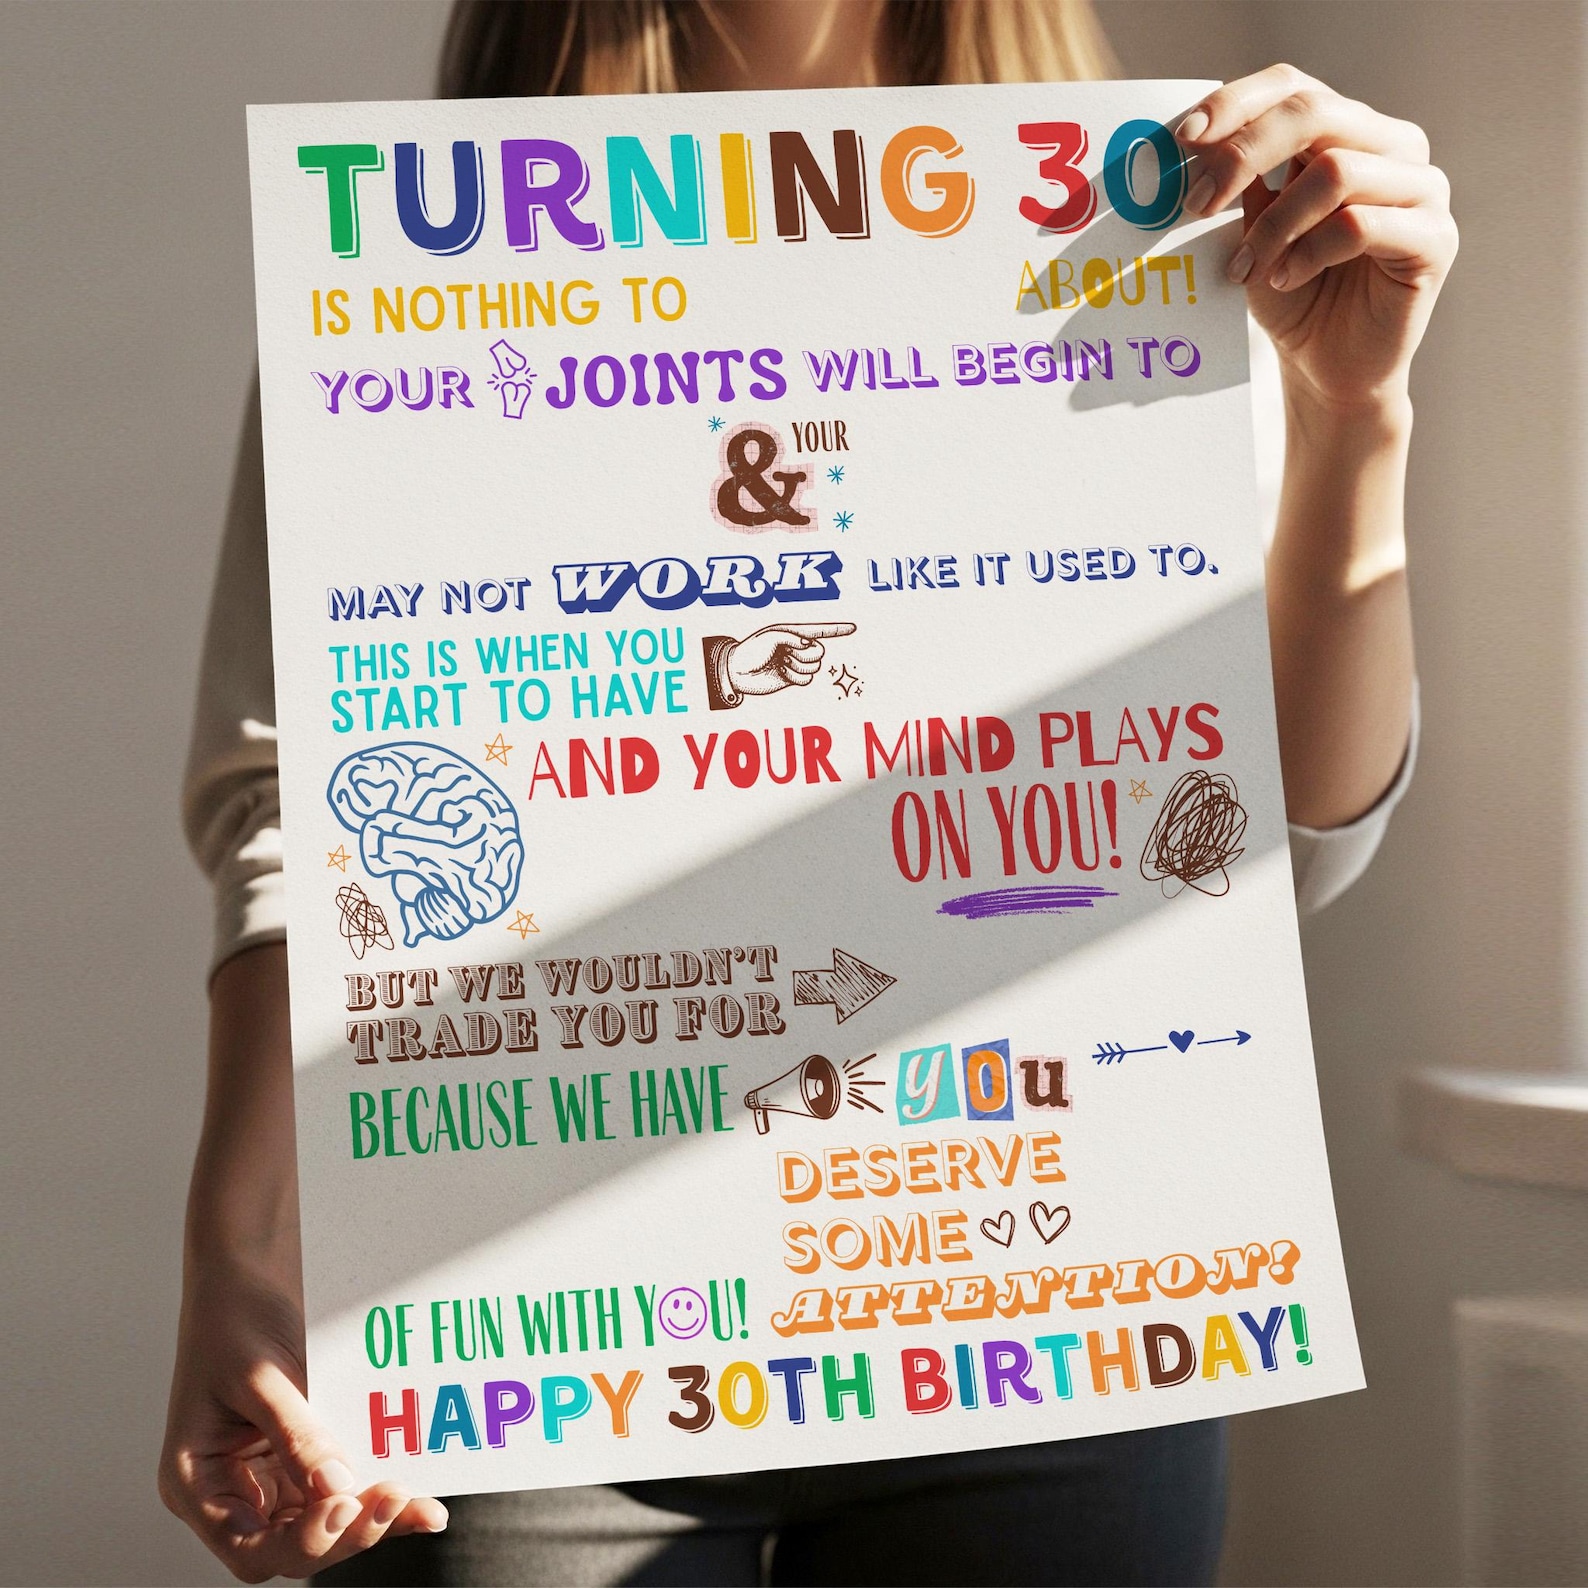 TURNING 30
IS NOTHING TO ABOUT!
YOUR JOINTS WILL BEGIN TO
& YOUR
MAY NOT WORK LIKE IT USED TO.
THIS IS WHEN YOU
START TO HAVE
AND YOUR MIND PLAYS
ON YOU!
BUT WE WOULDN'T
TRADE YOU FOR
BECAUSE WE HAVE
OF FUN WITH YOU!
you
DESERVE
SOME
ATTENTION!
HAPPY 30TH BIRTHDAY!